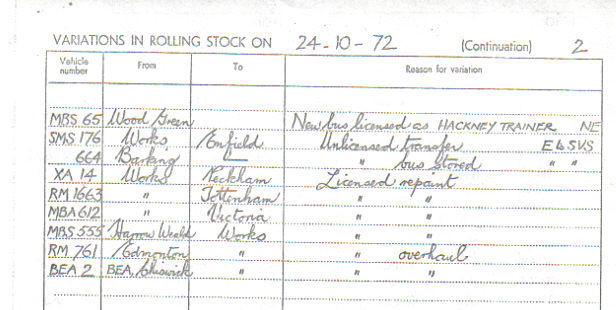 VARIATIONS IN ROLLING STOCK ON 24-10-72 (Continuation) 2
Vehicle number From To Reason for variation
MBS 65 Wood Green New bus licensed as HACKNEY TRAINER NE
SMS 176 Works Enfield Unlicensed transfer E6 SVS
664 Barking " " bus stored " "
XA 14 Works Peckham Licensed repaint
RM 1663 " Tottenham " "
MBA 612 " Victoria " "
MBS 555 Harrow Weald Works " "
RM 761 Edmonton " " overhaul
BEA 2 BEA, Chiswick " " "